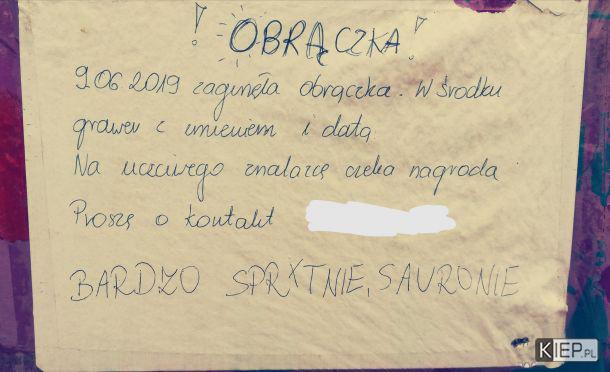 ! OBRĄCZKA!
9.06 2019 zaginęła obrączka. W środku
grawer z imieniem i datą
Na uczciwego znalazcę czeka nagroda
Proszę o kontakt
BARDZO SPRYTNIE, SAURONIE
KIEP.PL